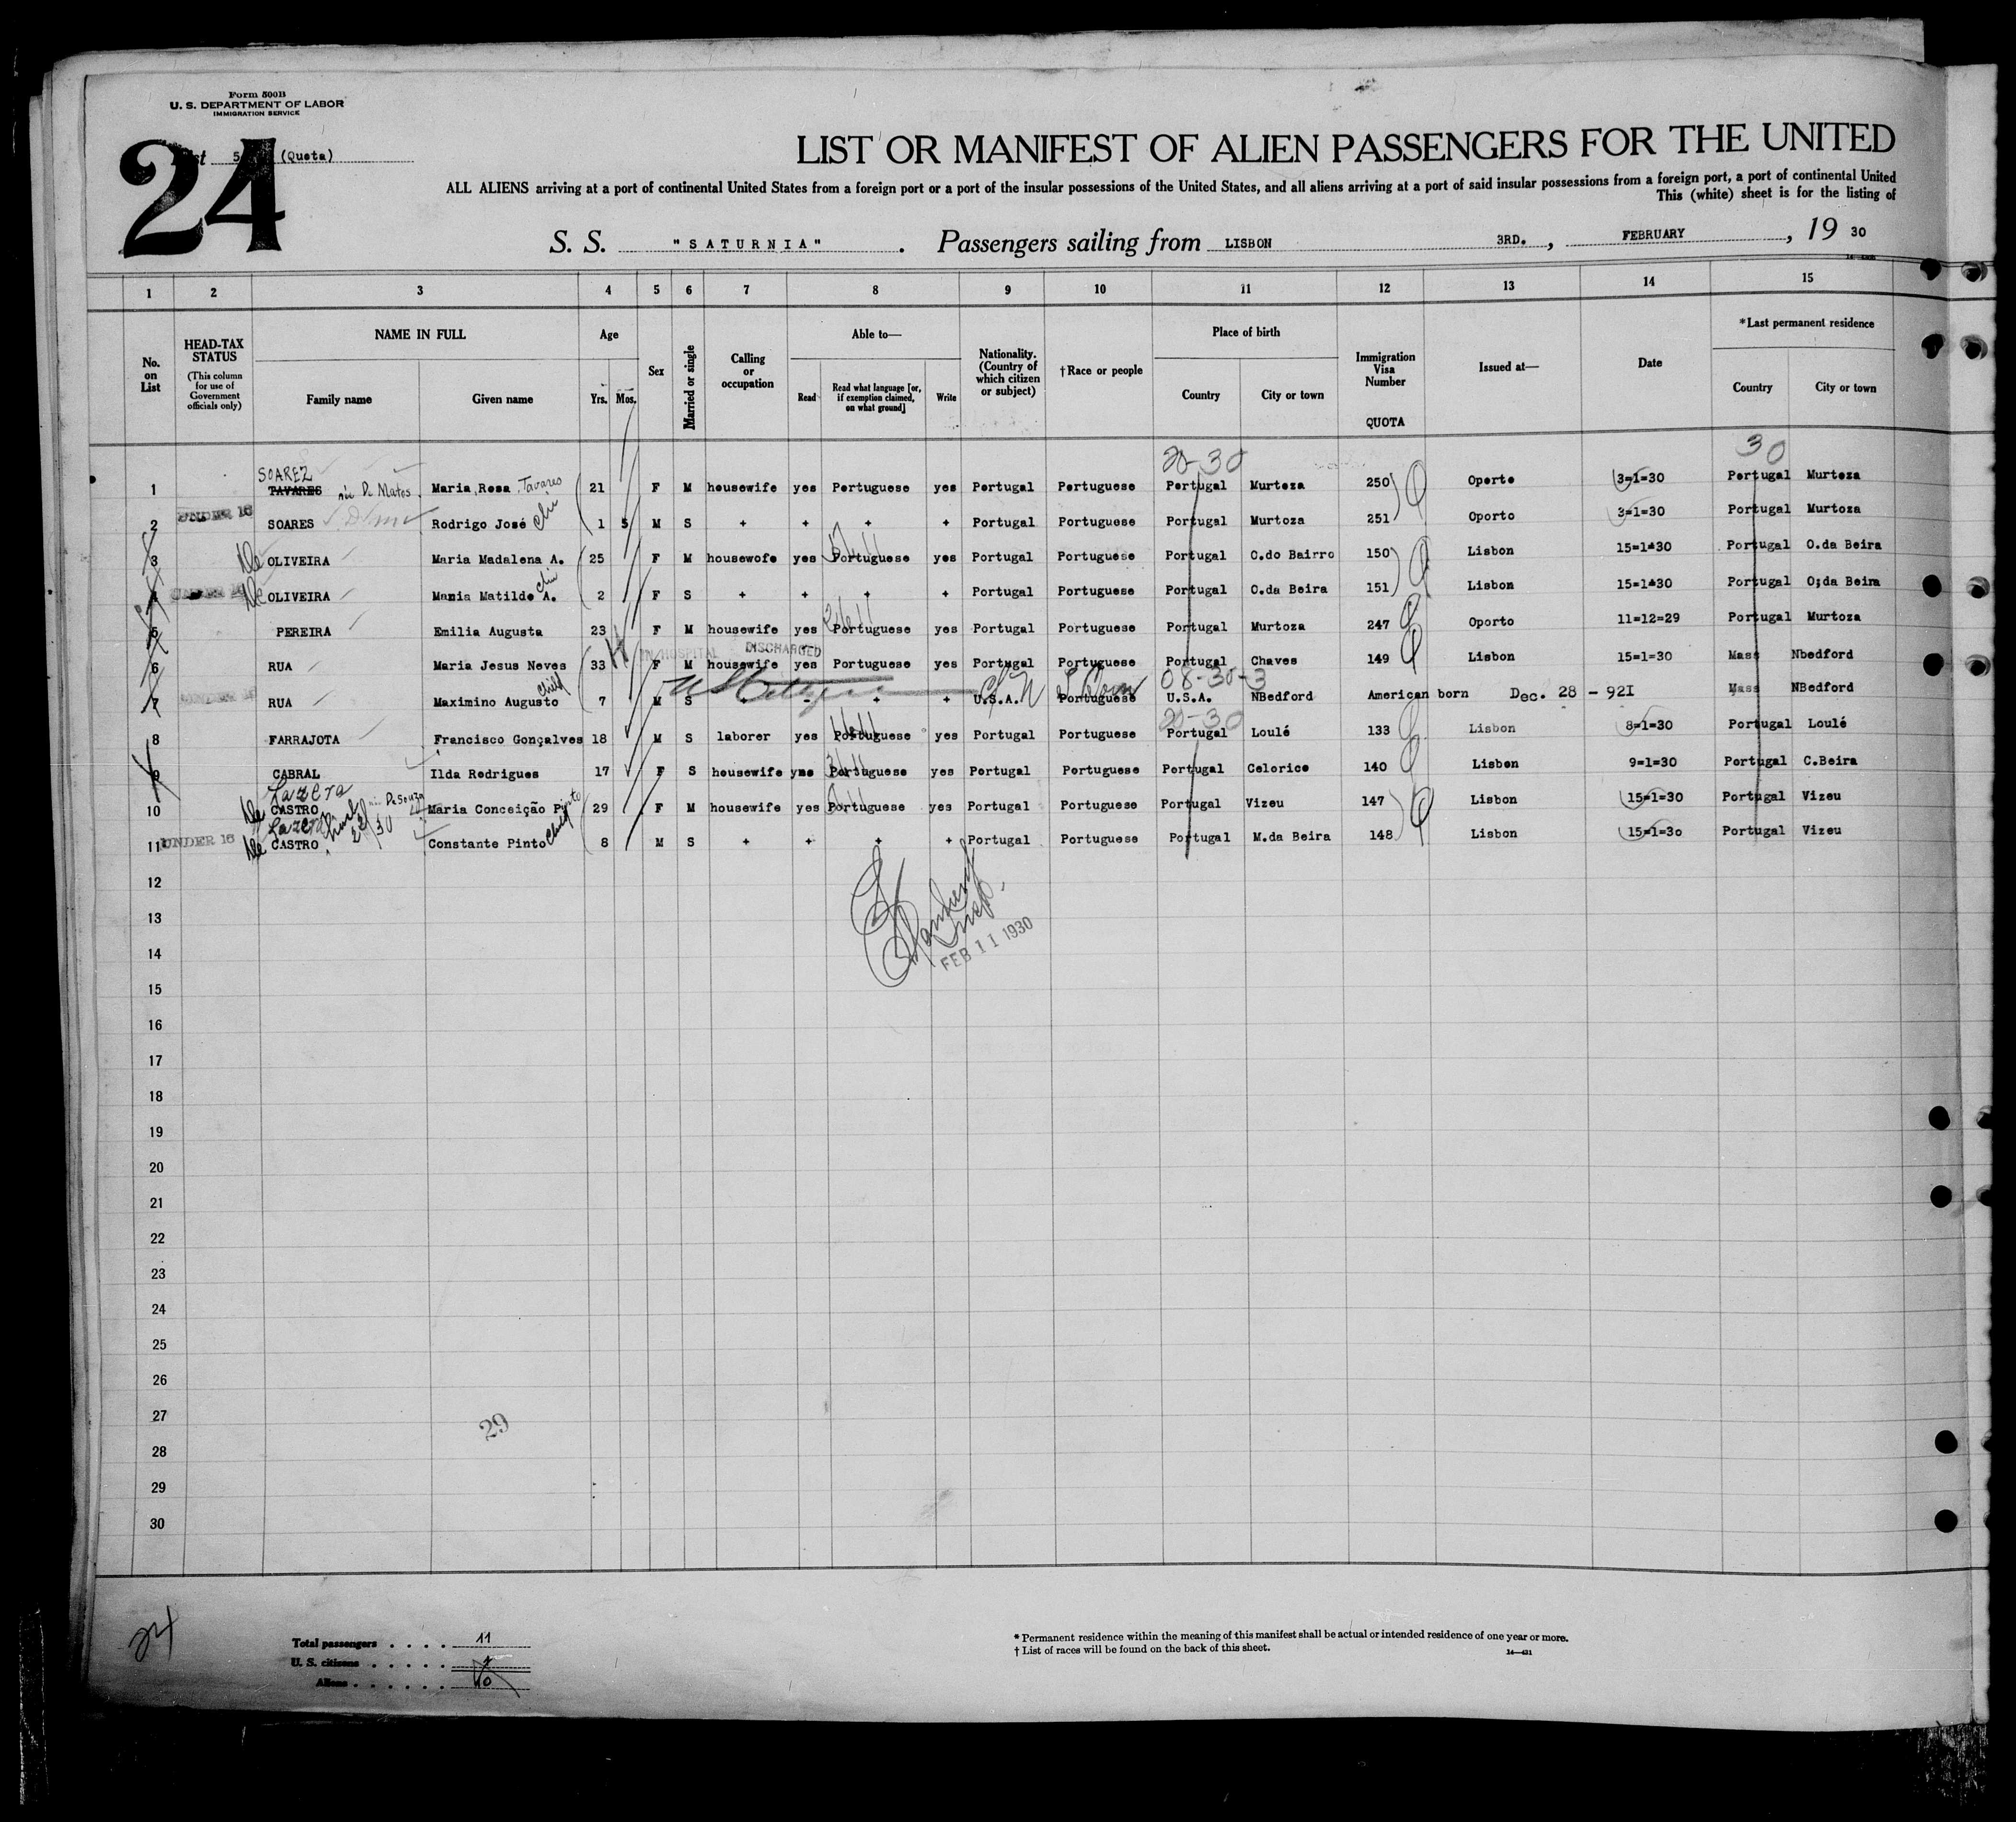 Form 500B
U. S. DEPARTMENT OF LABOR
IMMIGRATION SERVICE
24
List 5 (Quota)
LIST OR MANIFEST OF ALIEN PASSENGERS FOR THE UNITED
ALL ALIENS arriving at a port of continental United States from a foreign port or a port of the insular possessions of the United States, and all aliens arriving at a port of said insular possessions from a foreign port, a port of continental United
This (white) sheet is for the listing of
S. S. "SATURNIA". Passengers sailing from LISBON 3RD., FEBRUARY, 19 30
1 2 3 4 5 6 7 8 9 10 11 12 13 14 15
No. on List
HEAD-TAX STATUS (This column for use of Government officials only)
NAME IN FULL Family name Given name
Age Yrs. Mos.
Sex
Married or single
Calling or occupation
Able to— Read Read what language [or, if exemption claimed, on what ground] Write
Nationality. (Country of which citizen or subject)
†Race or people
Place of birth Country City or town
Immigration Visa Number QUOTA
Issued at—
Date
*Last permanent residence Country City or town
20-30 30
SOAREZ
1 TAVARES née De Matos Maria Rosa Tavares 21 F M housewife yes Portuguese yes Portugal Portuguese Portugal Murtoza 250 Oporto 3=1=30 Portugal Murtoza
2 UNDER 16 SOARES Rodrigo José 1 5 M S + + + + Portugal Portuguese Portugal Murtoza 251 Oporto 3=1=30 Portugal Murtoza
3 De OLIVEIRA Maria Madalena A. 25 F M housewofe yes Portuguese yes Portugal Portuguese Portugal O.do Bairro 150 Lisbon 15=1=30 Portugal O.da Beira
4 UNDER 16 De OLIVEIRA Mania Matilde A. 2 F S + + + + Portugal Portuguese Portugal O.da Beira 151 Lisbon 15=1=30 Portugal O;da Beira
5 PEREIRA Emilia Augusta 23 F M housewife yes Portuguese yes Portugal Portuguese Portugal Murtoza 247 Oporto 11=12=29 Portugal Murtoza
IN HOSPITAL DISCHARGED
6 RUA Maria Jesus Neves 33 F M housewife yes Portuguese yes Portugal Portuguese Portugal Chaves 149 Lisbon 15=1=30 Mass Nbedford
08-30-3
7 UNDER 16 RUA Maximino Augusto child 7 M S + - + + U.S.A. Portuguese U.S.A. NBedford American born Dec. 28 - 92I Mass NBedford
20-30
8 FARRAJOTA Francisco Gonçalves 18 M S laborer yes Portuguese yes Portugal Portuguese Portugal Loulé 133 Lisbon 8=1=30 Portugal Loulé
9 CABRAL Ilda Rodrigues 17 F S housewife yne Portuguese yes Portugal Portuguese Portugal Celorico 140 Lisbon 9=1=30 Portugal C.Beira
Lazera
10 De CASTRO née De Souza Maria Conceição Pinto 29 F M housewife yes Portuguese yes Portugal Portuguese Portugal Vizeu 147 Lisbon 15=1=30 Portugal Vizeu
Lazera
11 UNDER 16 De CASTRO Constante Pinto child 8 M S + + + + Portugal Portuguese Portugal M.da Beira 148 Lisbon 15=1=30 Portugal Vizeu
12
13
Insp.
FEB 11 1930
14
15
16
17
18
19
20
21
22
23
24
25
26
27
29
28
29
30
24
Total passengers . . . . 11
U. S. citizens . . . . . 1
Aliens . . . . . . 10
* Permanent residence within the meaning of this manifest shall be actual or intended residence of one year or more.
† List of races will be found on the back of this sheet.
14—431